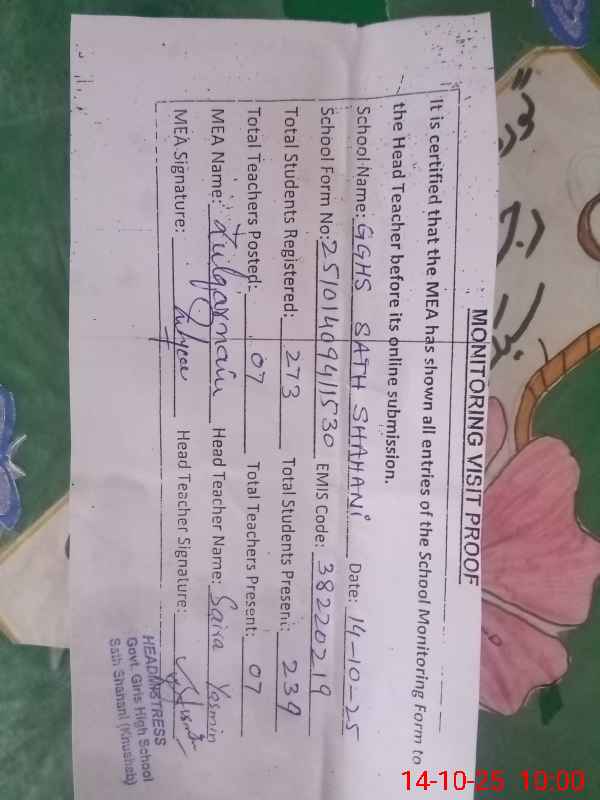 MONITORING VISIT PROOF
It is certified that the MEA has shown all entries of the School Monitoring Form to
the Head Teacher before its online submission.
School Name: GGHS SATH SHAHANI Date: 14-10-25
School Form No: 25101409411530 EMIS Code: 38220219
Total Students Registered: 273 Total Students Present: 239
Total Teachers Posted: 07 Total Teachers Present: 07
MEA Name: Zulqarnain Head Teacher Name: Saira Yasmin
MEA Signature: Head Teacher Signature:
HEADMISTRESS
Govt. Girls High School
Sath Shahani (Khushab)
14-10-25 10:00